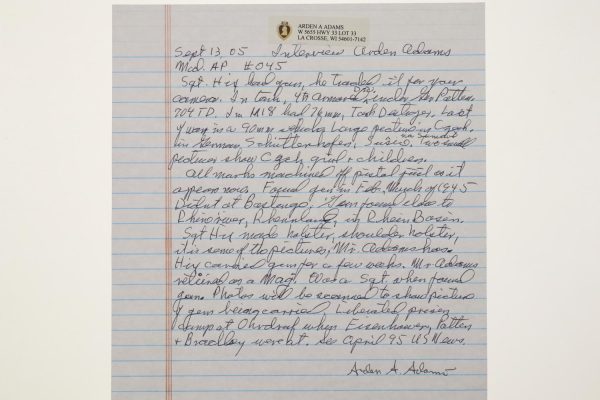 ARDEN A ADAMS
W 5655 HWY 33 LOT 33
LA CROSSE, WI 54601-7142
Sept 13, 05 Interview Arden Adams
Mod. AP #045
Sgt. Hiz had gun, he traded it for your
camera. In tank, 4th Armored Div. under Gen Patton.
704 TD. In M18 had 76mm, Tank Destroyer. Last
of war in a 90mm which Large picture is Czech.
in German, Schüttenhofen, Susice, Two small
pictures show Czech girl & children.
All marks machined off pistol just as it
appears now. Found gun in Feb, March of 1945
Didn't at Bastonge, Gun found close to
Rhine river, Rhineland, in Rhein Basin.
Sgt Hiz made holster, shoulder holster,
it is some of the pictures, Mr. Adams has.
Hiz carried gun for a few weeks. Mr Adams
retired as a Maj. Was a Sgt. when found
gun. Photos will be scanned to show picture
of gun being carried. Liberated prison
camp at Ohrdruf when Eisenhower, Patton
+ Bradley were at. See April 95 US News.
Arden A. Adams